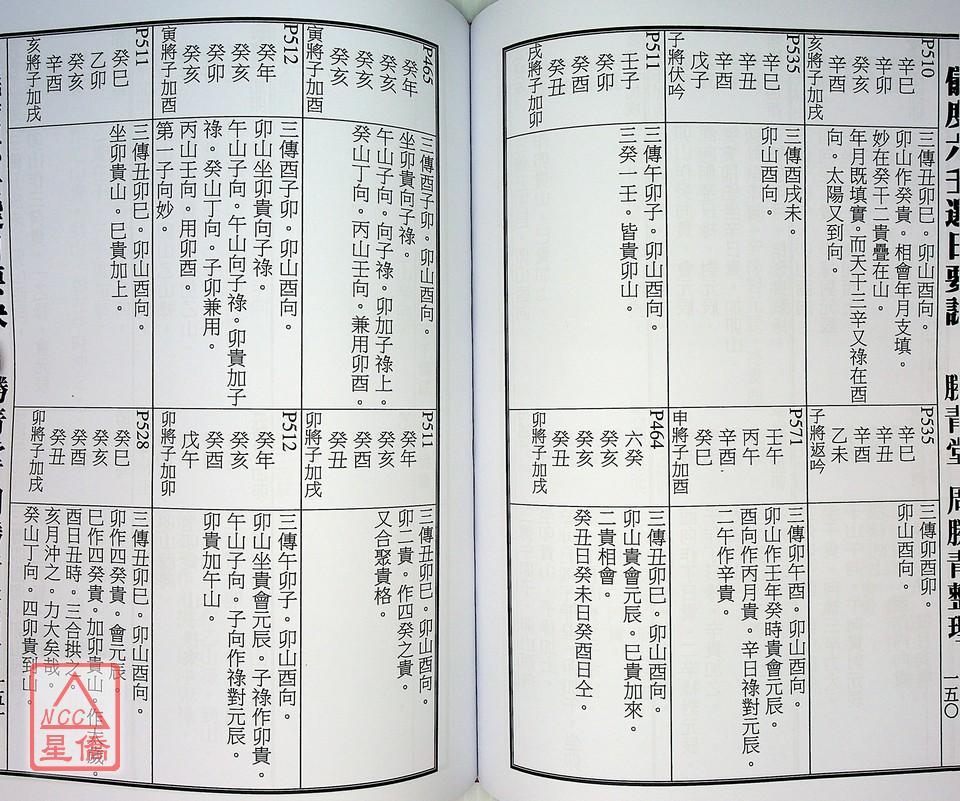 儀度六壬選日要訣
勝青堂 周勝青整理
一五〇
P510
辛巳
辛卯
癸亥
辛酉
亥將子加戌
三傳丑卯巳。卯山酉向。
卯山作癸貴。相會年月支填。
妙在癸干二貴疊在山。
年月既填實。而天干三辛又祿在酉
向。太陽又到向。
P535
辛巳
辛丑
辛酉
戊子
子將伏吟
三傳酉戌未。
卯山酉向。
P511
壬子
癸卯
癸酉
癸丑
戌將子加卯
三傳午卯子。卯山酉向。
三癸一壬。皆貴卯山。
P535
辛巳
辛丑
辛酉
乙未
子將返吟
三傳卯酉卯。
卯山酉向。
P571
壬午
丙午
辛酉
癸巳
申將子加酉
三傳卯午酉。卯山酉向。
卯山作壬年癸時貴會元辰。
酉向作丙月貴。辛日祿對元辰。
二午作辛貴。
P464
六癸
癸亥
癸酉
癸丑
卯將子加戌
三傳丑卯巳。卯山酉向。
卯山貴會元辰。巳貴加來。
二貴相會。
癸丑日癸未日癸酉日仝。
P465
癸年
癸亥
癸亥
癸亥
寅將子加酉
三傳酉子卯。卯山酉向。
坐卯貴向子祿。
午山子向。卯加子祿上。
癸山丁向。丙山壬向。兼用卯酉。
P512
癸年
癸亥
癸卯
癸亥
寅將子加酉
三傳酉子卯。卯山酉向。
卯山坐卯貴向子祿。
午山子向。午山向子祿。卯貴加子
祿。癸山丁向。子卯兼用。
丙山壬向。用卯酉。
第一子向妙。
P511
癸巳
乙卯
癸亥
辛酉
亥將子加戌
三傳丑卯巳。卯山酉向。
坐卯貴山。巳貴加上。
P511
癸年
癸亥
癸酉
癸丑
卯將子加戌
三傳丑卯巳。卯山酉向。
卯二貴。作四癸之貴。
又合聚貴格。
P512
癸年
癸亥
癸酉
戊午
卯將子加卯
三傳午卯子。卯山酉向。
卯山坐貴會元辰。子祿作卯貴。
午山子向。子向作祿對元辰。
卯貴加午山。
P528
癸巳
癸亥
癸酉
癸丑
卯將子加戌
三傳丑卯巳。卯山酉向。
卯作四癸貴。會元辰。
巳作四癸貴。加卯貴山。作太歲。
酉日丑時。三合拱之。
亥月沖之。力大矣哉。
癸山丁向。四卯貴到山。
NCC
星僑